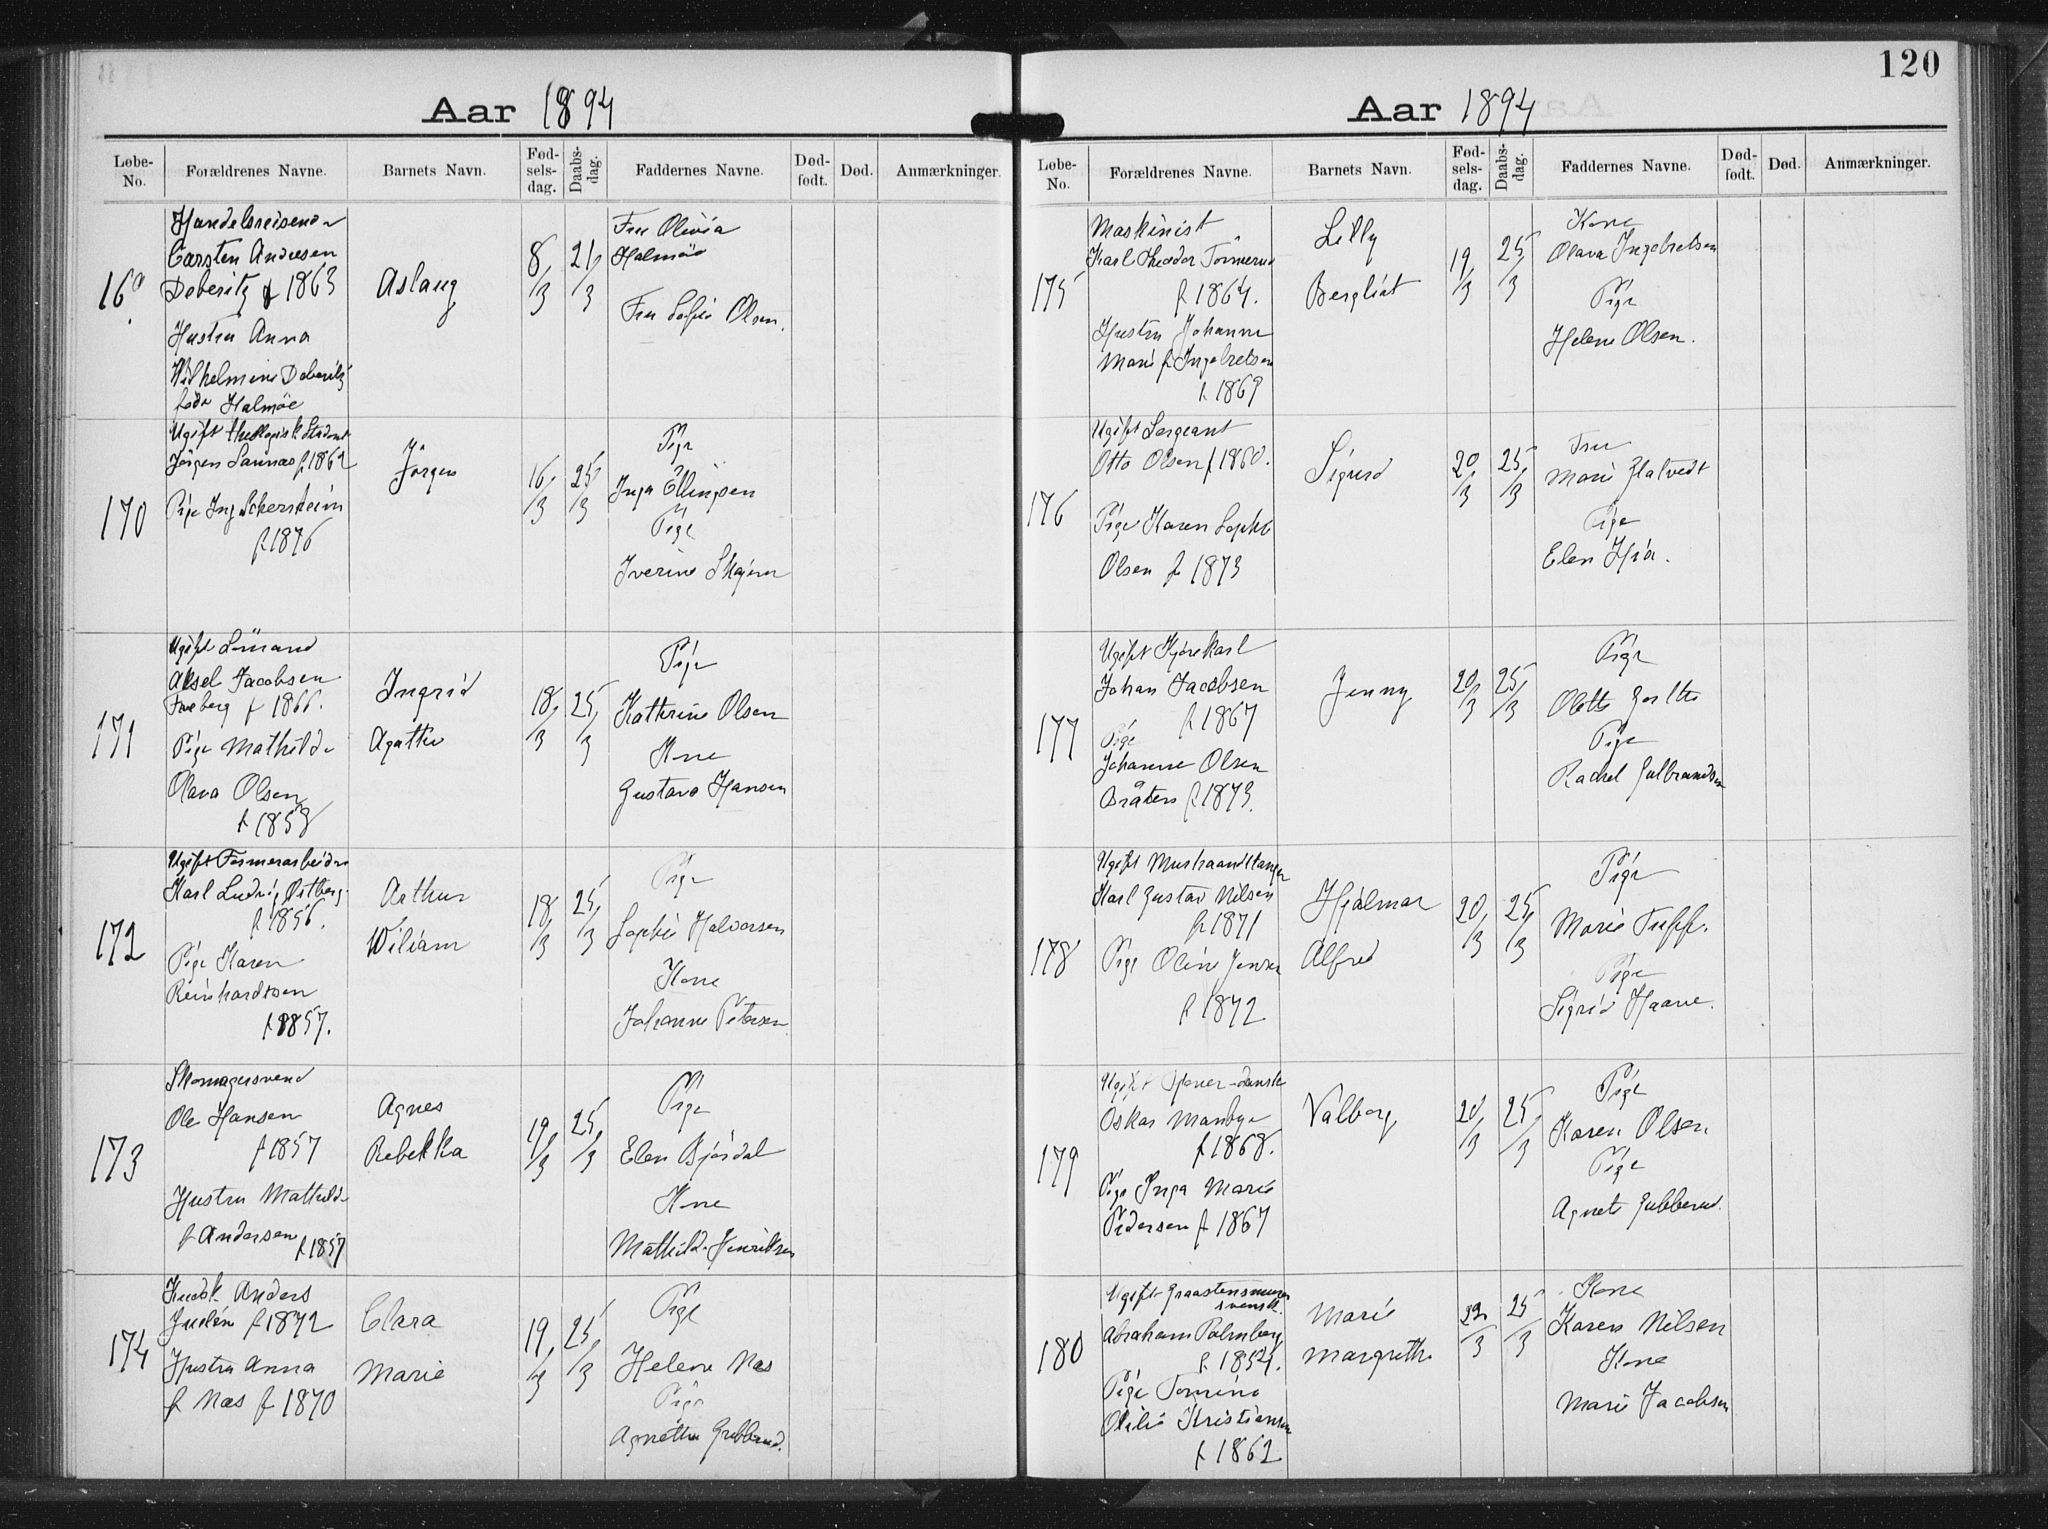 120
Aar 1894
Løbe-No.
Forældrenes Navne.
Barnets Navn.
Fød-sels-dag.
Daabs-dag.
Faddernes Navne.
Død-født.
Død.
Anmærkninger.
169
Handelsreisende
Carsten Andresen
Deberitz f 1863
Hustru Anna
Vilhelmine Deberitz
føde Halmöe
Aslaug
8/3
21/3
Fru Olivia
Halmöe
Fru Sofie Olsen.
170
Ugift theologisk Student
Jörgen f 1862
Pige
f 1876
Jörgen
16/3
25/3
Pige
Inga Ellingsen
Pige
Iverine
171
Ugift Sömand
Aksel Jacobsen
f 1866.
Pige Mathilde
Olava Olsen
f 1858
Ingrid
Agathe
18/3
25/3
Pige
Kathrine Olsen
Kone
Gustava Hansen
172
Ugift Formerarbeider
Karl Ludvig Østberg
f 1856.
Pige Karen
Reinhardtsen
f 1857.
Arthur
Wiliam
18/3
25/3
Pige
Sophie Halvorsen
Kone
Johanne Petersen
173
Skomagersvend
Ole Hansen
f 1857
Hustru Mathilde
f Andersen
f 1857
Agnes
Rebekka
19/3
25/3
Pige
Elen Björdal
Kone
Mathilde Henriksen
174
Kudsk Anders
Judén f 1872
Hustru Anna
f Næs f 1870
Clara
Marie
19/3
25/3
Pige
Helene Næs
Pige
Agnethe Gubberud.
Aar 1894
Løbe-No.
Forældrenes Navne.
Barnets Navn.
Fød-sels-dag.
Daabs-dag.
Faddernes Navne.
Død-født.
Død.
Anmærkninger.
175
Maskinist
Karl Theodor
f 1864.
Hustru Johanne
Marie f Ingebretsen
f 1869
Lilly
Bergliot
19/3
25/3
Kone
Olava Ingebretsen
Pige
Helene Olsen.
176
Ugift Sergeant
Otto Olsen f 1860.
Pige Karen Sophie
Olsen f 1873
Sigurd
20/3
25/3
Fru
Marie
Pige
Elen
177
Ugift Kjörekarl
Johan Jacobsen
f 1867
Pige
Johanne Olsen
Bråten f 1873.
Jenny
20/3
25/3
Pige
Olette
Pige
Rachel Gulbrandsen
178
Ugift
Karl Gustav Nilsen
f 1871
Pige Oline Jensen
f 1872
Hjalmar
Alfred
20/3
25/3
Pige
Marie
Pige
Sigrid Haave.
179
Ugift dansk
Oskar
f 1868.
Pige Inga Marie
Pedersen f 1867
Valborg
20/3
25/3
Pige
Karen Olsen
Pige
Agnete Gubberud.
180
Ugift Graastensmurer
svensk.
Abraham Palmberg
f 1854.
Pige
Otilie Kristiansen
f 1862
Marie
Margrethe
22/3
25/3
Kone
Karen Nilsen
Kone
Marie Jacobsen